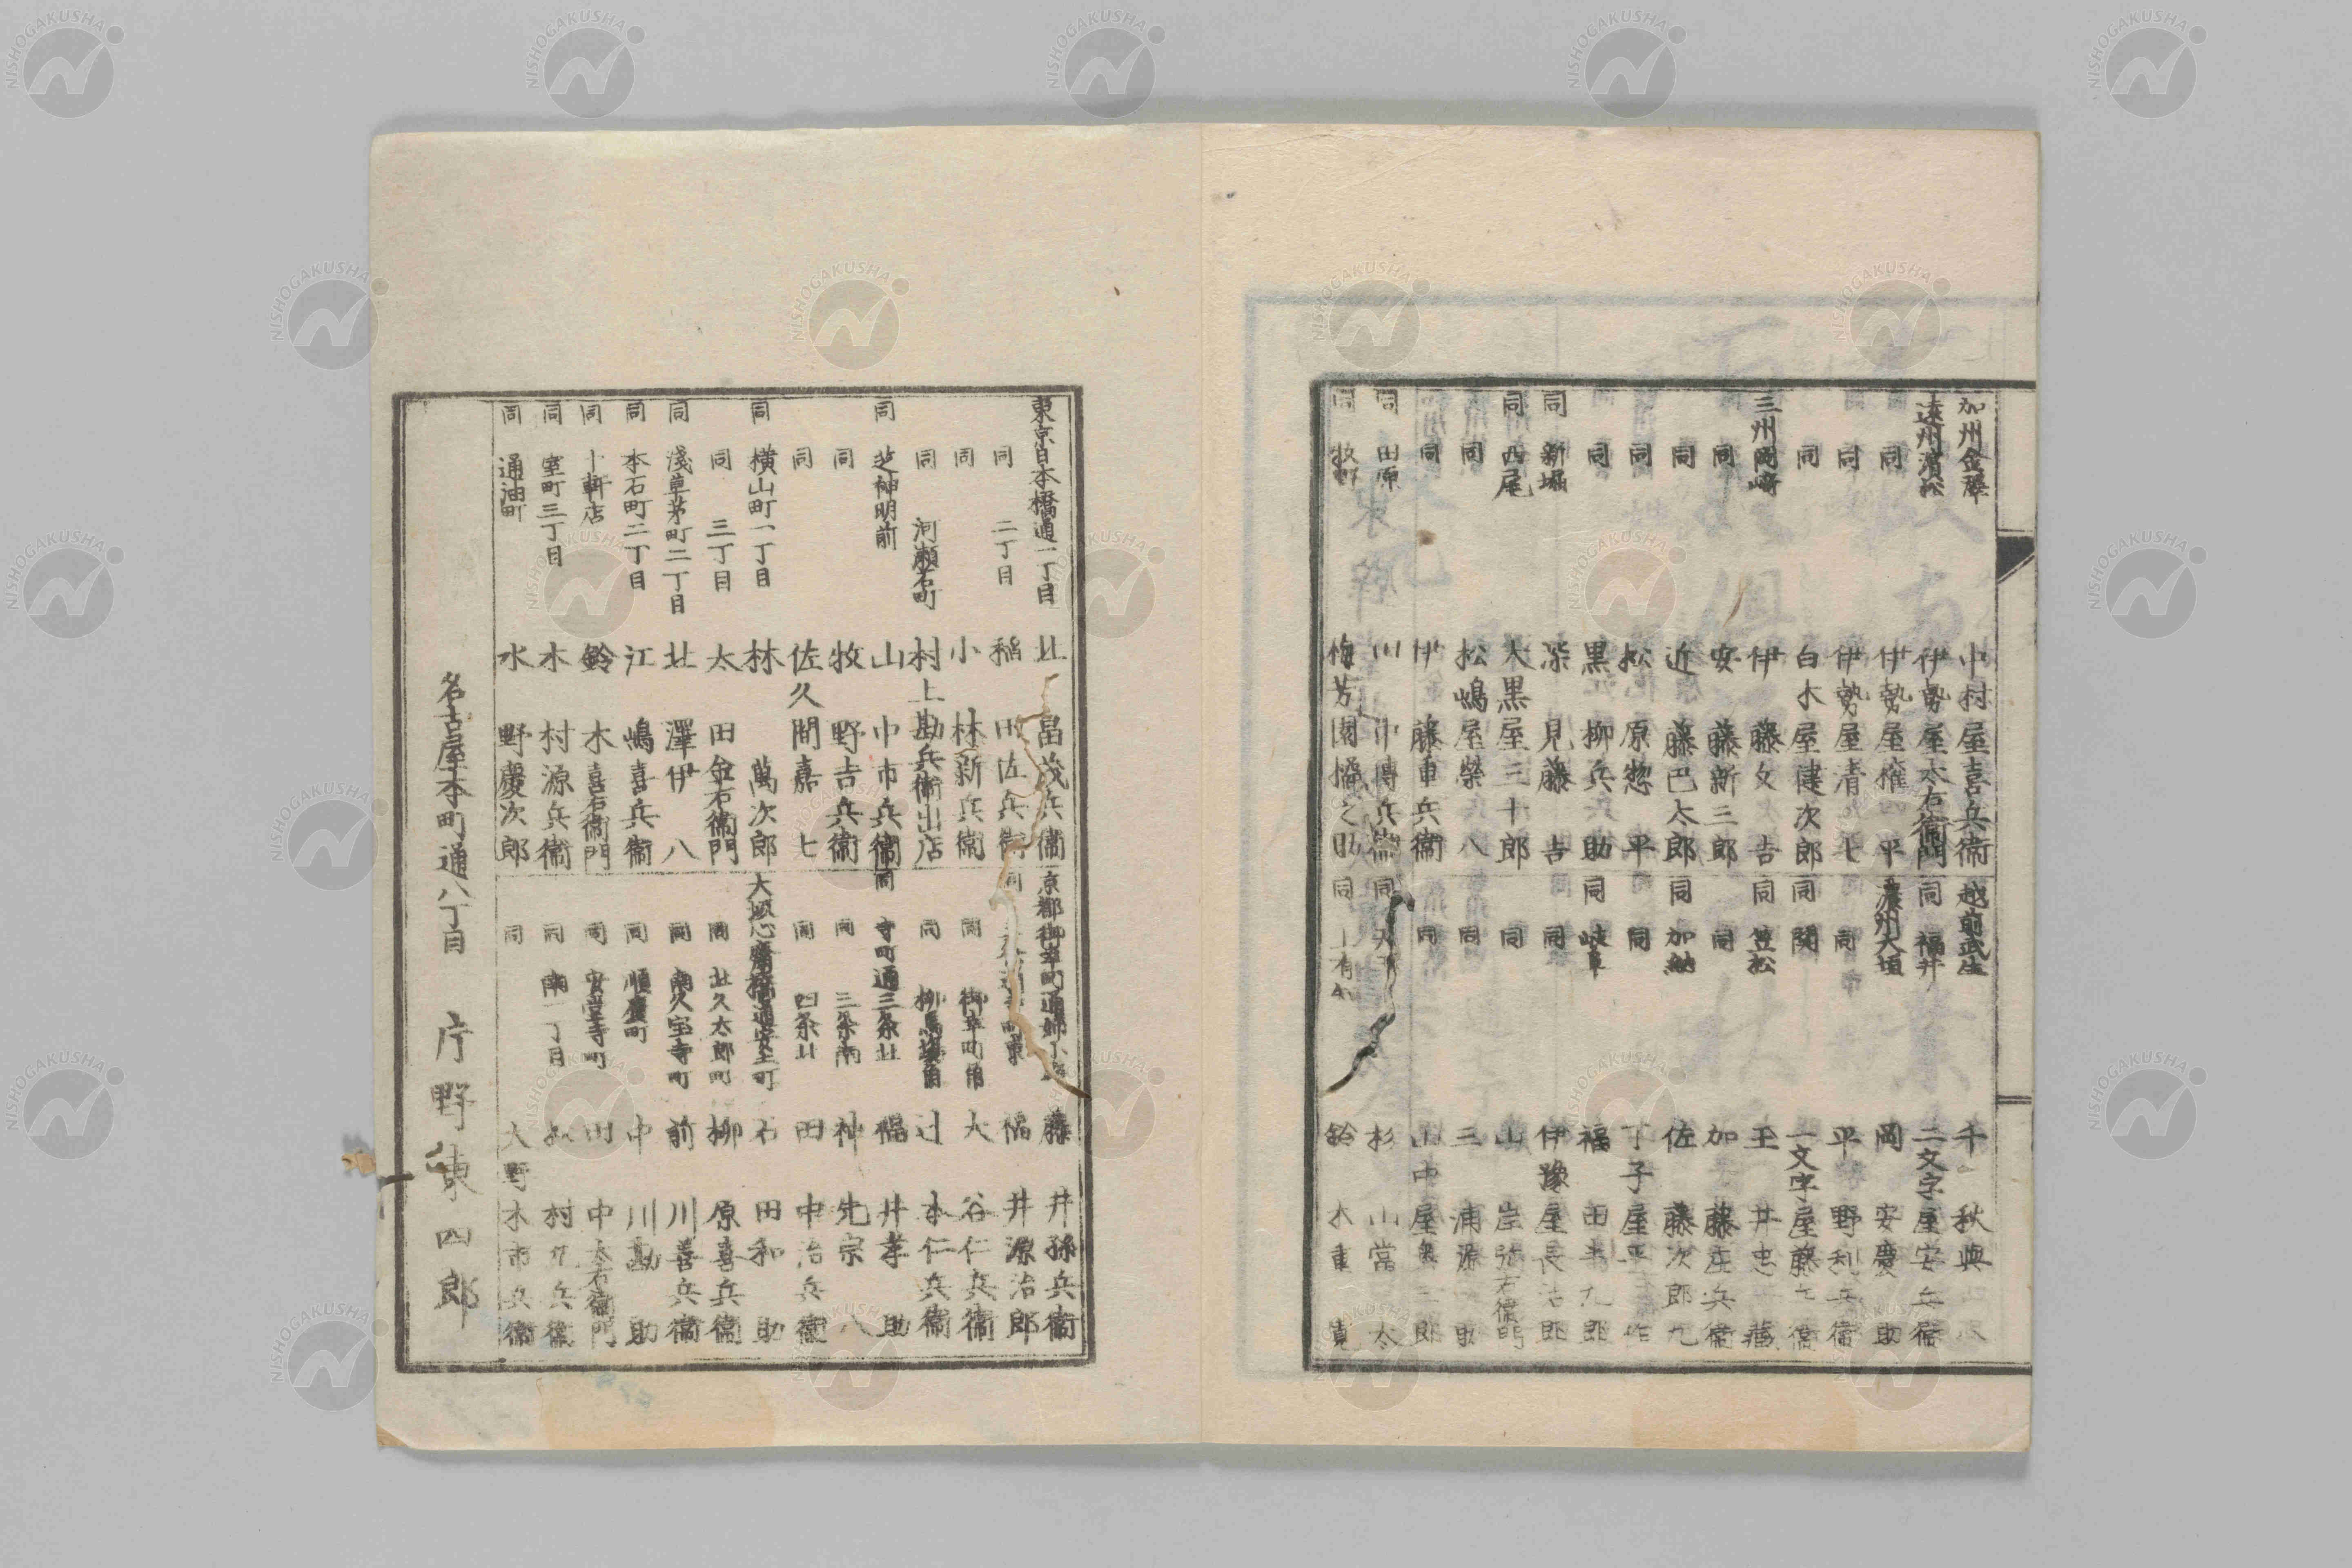 加州金澤 中村屋喜兵衞
遠州濱松 伊勢屋太右衞門
同 伊勢屋権平
同 伊勢屋清七
同 白木屋健次郎
三州岡﨑 伊藤文吉
同 安藤新三郎
同 近藤巴太郎
同 松原惣平
同 黒柳兵助
同 新堀 深見藤吉
同 西尾 大黒屋三十郎
同 松嶋屋榮八
同 伊藤重兵衞
同 田原 川中傳兵衞
同 牧野 梅芳園橘之助
越前武生 千秋興
同 福井 二文字屋安兵衞
濃州大垣 岡安慶助
同 平野利兵衞
同 関 一文字屋藤
同 笠松 玉井忠藏
同 加藤庄兵衞
同 加納 佐藤次郎九
同 丁子屋平
同 岐阜 福田九郎
同 伊豫屋長治郎
同 山岸弥右衞門
同 三浦源助
同 山中屋
同 杉山常太
同 鈴木重
東京日本橋通一丁目 北畠茂兵衞
同 二丁目 稲田佐兵衞
同 小林新兵衞
同 河瀬石町 村上勘兵衞出店
同 芝神明前 山中市兵衞
同 牧野吉兵衞
同 佐久間嘉七
同 横山町一丁目 林萬次郎
同 三丁目 太田金右衞門
同 淺草茅町二丁目 北澤伊八
同 本石町二丁目 江嶋喜兵衞
同 十軒店 鈴木喜右衞門
同 室町三丁目 木村源兵衞
同 通油町 水野慶次郎
京都御幸町通姉小路 藤井孫兵衞
同 福井源治郎
同 御幸町 大谷仁兵衞
同 柳馬場 辻本仁兵衞
同 寺町通三条北 福井孝助
同 三条南 神先宗八
同 四条北 田中治兵衞
大坂心齋橋通安土町 石田和助
同 北久太郎町 柳原喜兵衞
同 南久宝寺町 前川善兵衞
同 順慶町 中川勘助
同 安堂寺町 田中太右衞門
同 南一丁目 松村九兵衞
同 大野木市兵衞
名古屋本町通八丁目 片野東四郎
NISHOGAKUSHA